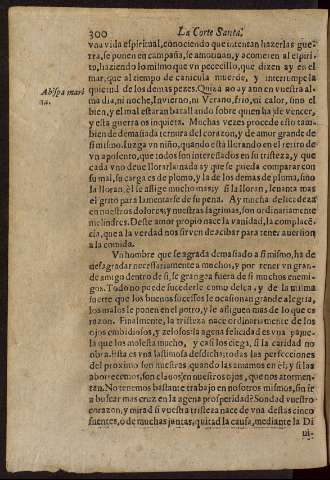 300 La Corte Santa.
vna vida espiritual, conociendo que intentan hazerlas gue-
rra, se ponen en campaña, se amotinan, y acometen al espiri-
to, haziendo lo mismo que vn pececillo, que dizen ay en el
Abispa mari
na.
mar, que al tiempo de canicula muerde, y interrumpe la
quietud de los demas pezes. Quizà no ay aun en vuestra al-
ma dia, ni noche, Invierno, ni Verano, frio, ni calor, sino el
bien, y el mal estaran batallando sobre quien ha de vencer,
y esta guerra os inquieta. Muchas vezes procede esto tam-
bien de demasiada ternura del coraçon, y de amor grande de
si mismo. Iuzga vn niño, quando està llorando en el retrete de
vn aposento, que todos son interessados en su tristeza, y que
cada vno deve llorar la nada ay que se pueda comparar con
su mal, su carga es de plomo, y la de los demas de pluma, sino
la lloran, èl se aflige mucho mas; y si la lloran, levanta mas
el grito para lamentarse de su pena. Ay mucha delicadeza
en nuestros dolores; y nuestras lagrimas, son ordinariamente
melindres. Deste amor propio nace la vanidad, la complacē-
cia, que a la verdad nos sirven de acibar para tener aversion
a la comida.
Vn hombre que se agrada demasiado a si mismo, ha de
desagradar necessariamente a muchos, y por tener vn gran-
de amigo dentro de si, se grangea fuera de si muchos enemi-
gos. Todo no puede sucederle como desea, y de la misma
suerte que los buenos sucessos le ocasionan grande alegria,
los malos le ponen en el potro, y le afligen mas de lo que es
razon. Finalmente, la tristeza nace ordinariamente de los
ojos embidiosos, y zelosos: la agena felicidad es vna paxue-
la que los molesta mucho, y casi los ciega, si la caridad no
obra. Esta es vna lastimosa desdicha: todas las perfecciones
del proximo son nuestras, quando las amamos en èl; y si las
aborrecemos, son clavos en nuestros ojos, que nos atormen-
zen. No tenemos bastante trabajo en nosotros mismos, sin ir
a buscar mas cruz en la agena prosperidad? Sondad vuestro
coraçon, y mirad si vuestra tristeza nace de vna destas cinco
fuentes, o de muchas juntas, quitad la causa, mediante la Di
ui-